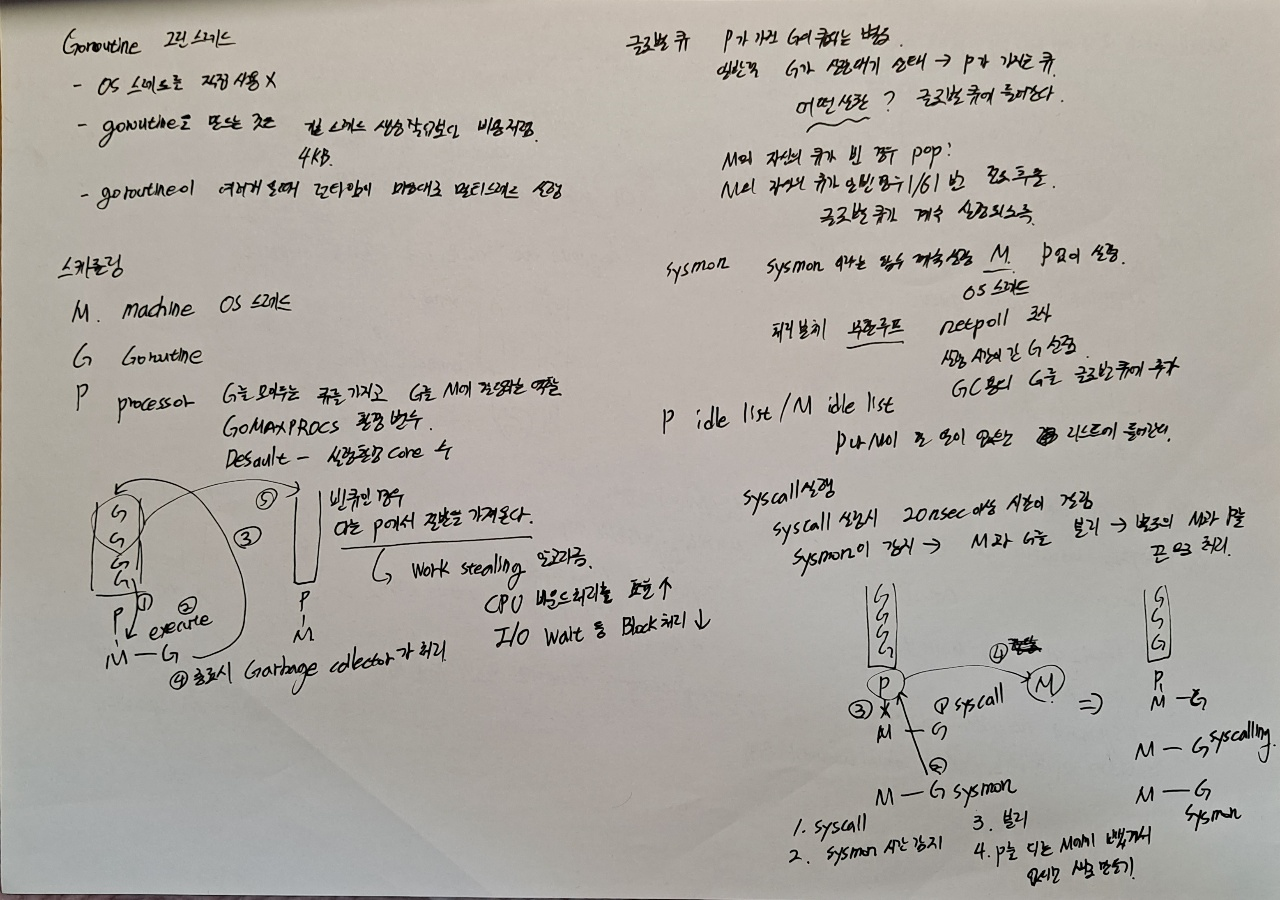 Goroutine 그린 스레드
- OS 스레드를 직접 사용 X
- goroutine을 만드는 것은 스레드 생성 비용저렴
4KB.
- goroutine이 여러개 일때 런타임이 멀티스레드 실행
스케줄링
M. machine OS 스레드
G Goroutine
P processor G를 모아두는 큐를 가지고 G를 M에 할당하는 역할
GOMAXPROCS 환경변수.
Default - 실행환경 core 수
G
G
G
G
①
②
execute
P
M — G
③
④ 종료시 Garbage collector가 처리.
⑤
빈큐인 경우
다른 P에서 절반을 가져온다.
Work stealing 알고리즘.
CPU 바운드처리를 효율 ↑
I/O Wait 등 Block처리 ↓
P
M
글로벌 큐 P가 가진 G의 큐와는 별도.
일반적 G가 실행대기 상태 → P가 가지는 큐.
어떤상황? 글로벌큐에 들어간다.
M의 자신의 큐가 빈 경우 pop!
M의 자신의 큐가 안빈경우 1/61 번
글로벌 큐가 계속 실행되도록
sysmon sysmon 이라는 함수 계속실행 M. P없이 실행.
OS 스레드
무한루프 netpoll 조사
실행 시간이 긴 G 선점.
GC용의 G를 글로벌큐에 추가
P idle list / M idle list
P나 M이 할 일이 없으면 리스트에 들어간다.
syscall실행
syscall 실행시 20nsec이상 시간이 걸림
sysmon이 감지 → M과 G를 분리 → 별도의 M과 P를
처리.
G
G
G
G
P
④
M
③ X
① syscall
M — G
②
M — G sysmon
⇒
G
G
G
G
P
M — G
M — G syscalling.
M — G
sysmon
1. syscall
2. sysmon 시간 감지
3. 분리
4. P를 다른 M에게
없으면 새로 만들기.